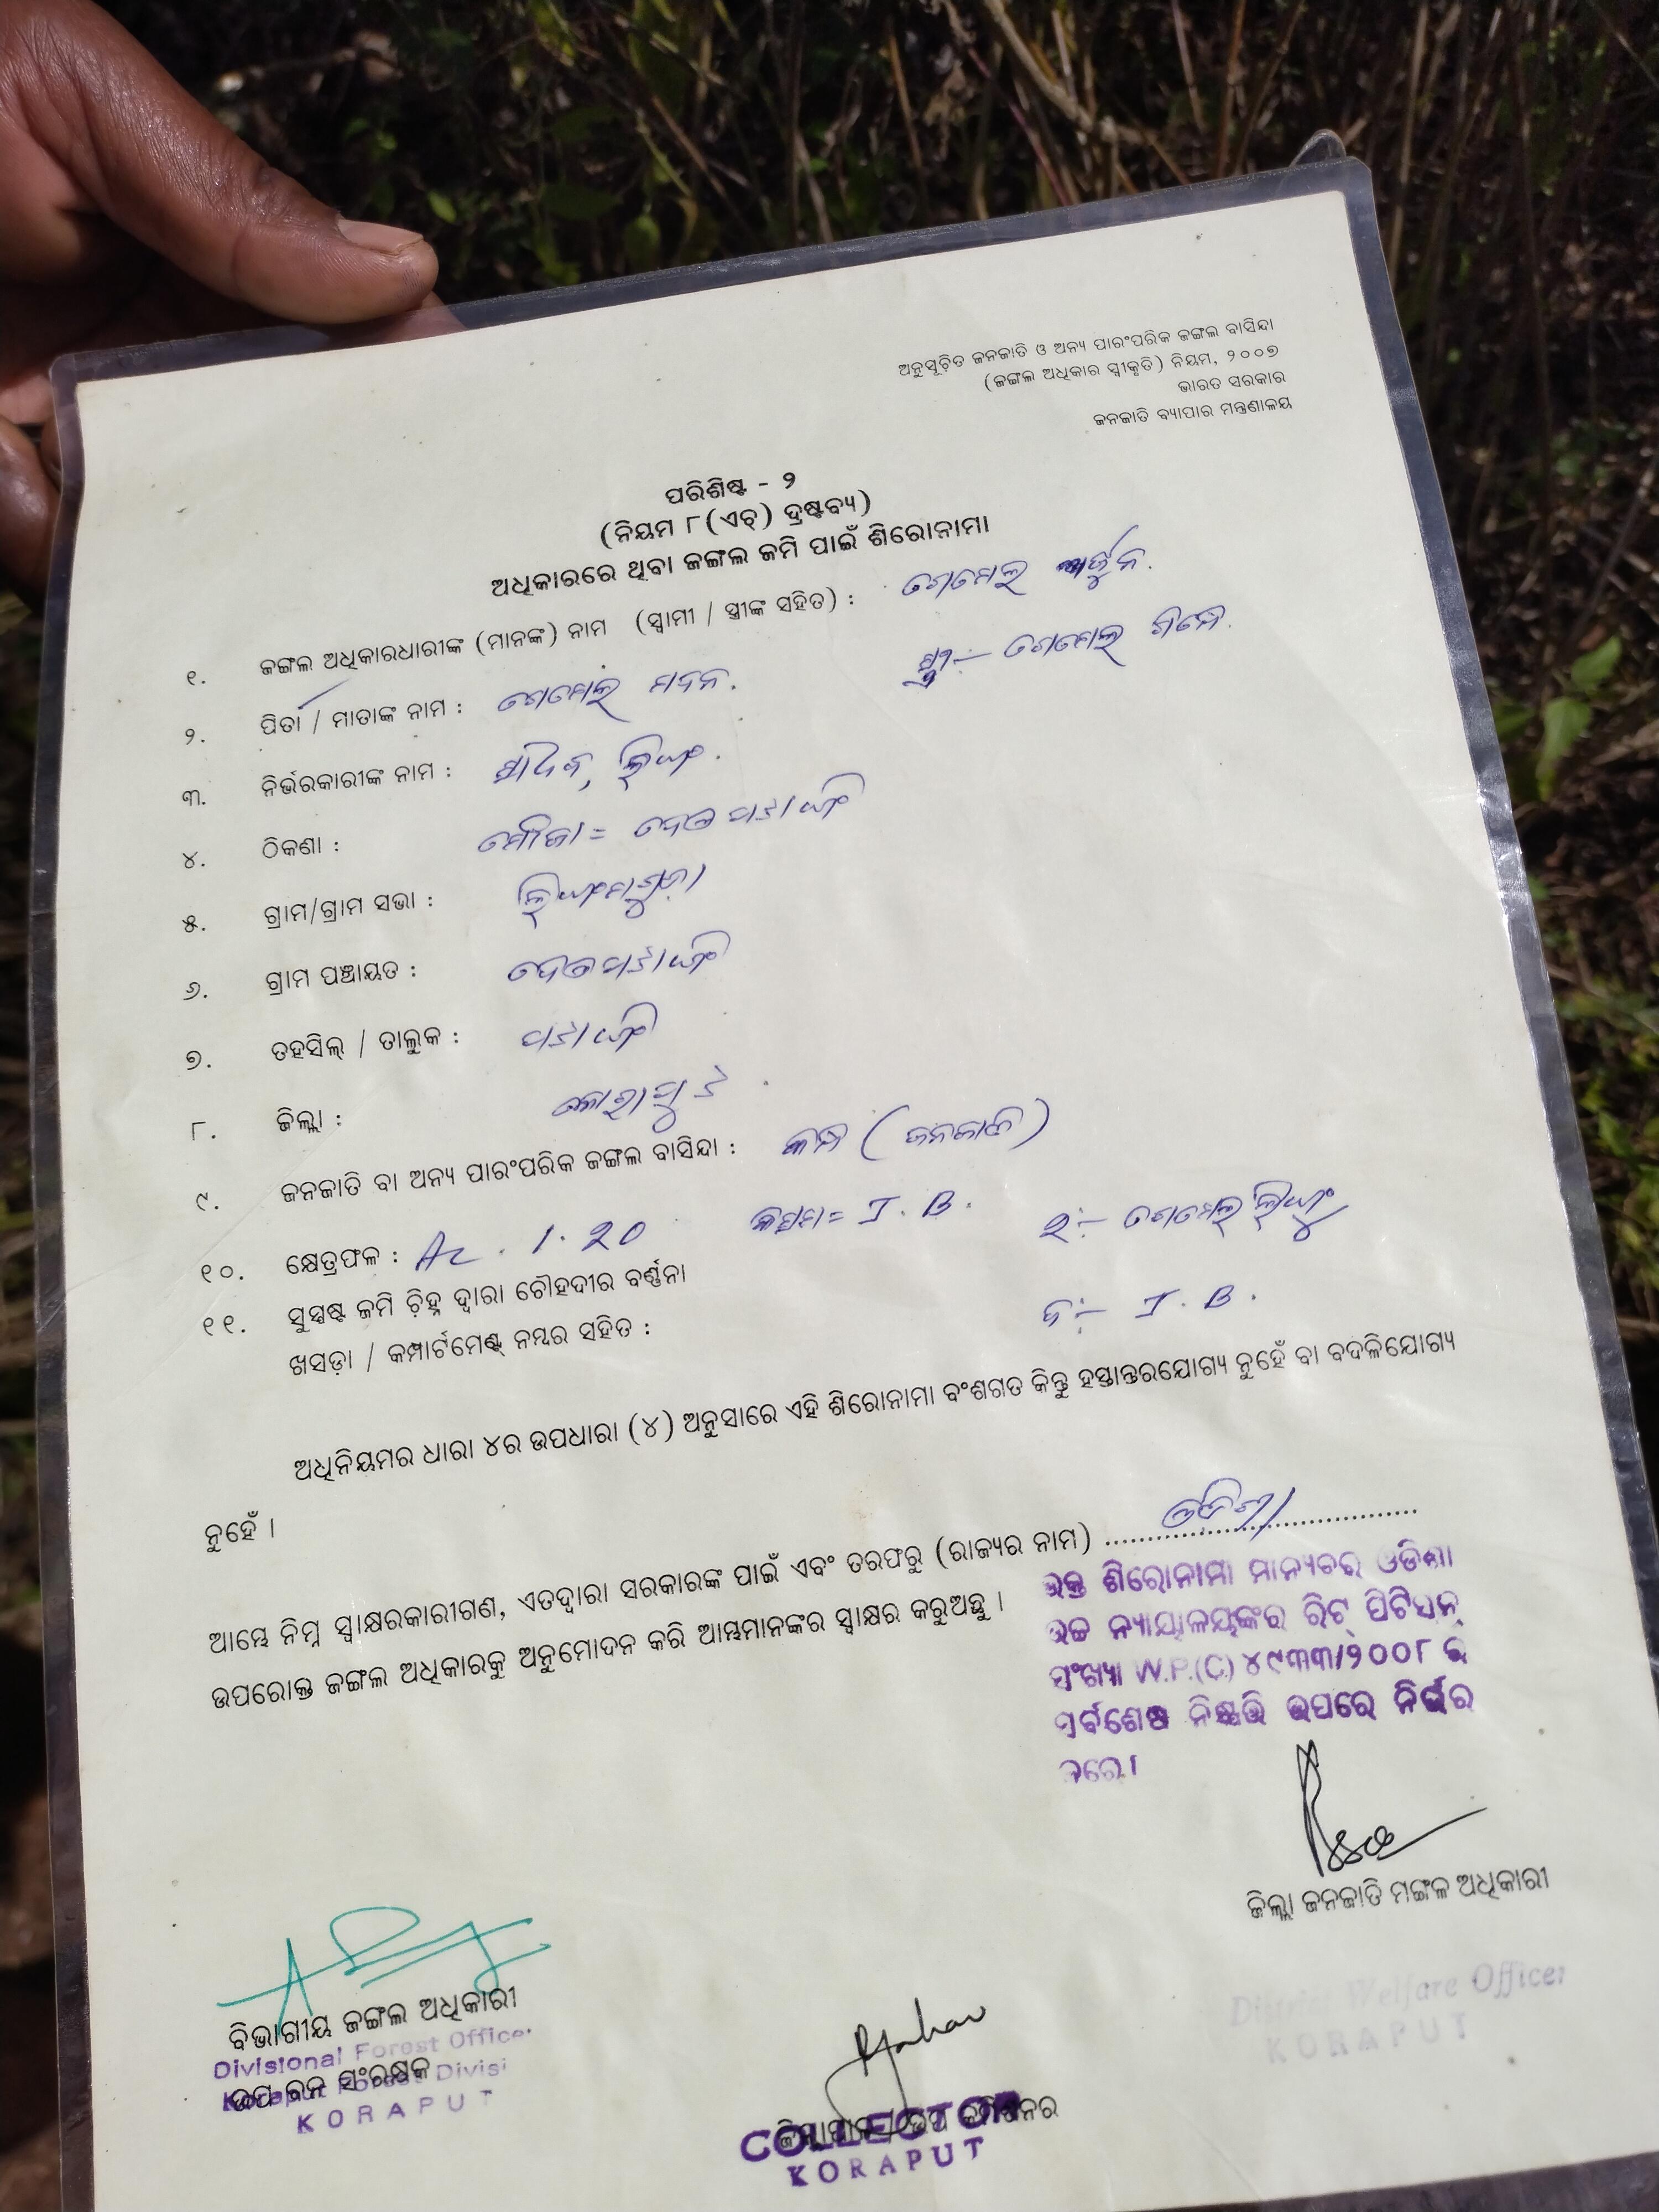 ଅନୁସୂଚିତ ଜନଜାତି ଓ ଅନ୍ୟ ପାରଂପରିକ ଜଙ୍ଗଲ ବାସିନ୍ଦା
(ଜଙ୍ଗଲ ଅଧିକାର ସ୍ୱୀକୃତି) ନିୟମ, ୨୦୦୭
ଭାରତ ସରକାର
ଜନଜାତି ବ୍ୟାପାର ମନ୍ତ୍ରଣାଳୟ
ପରିଶିଷ୍ଟ - ୨
(ନିୟମ ୮(ଏଚ୍) ଦ୍ରଷ୍ଟବ୍ୟ)
ଅଧିକାରରେ ଥିବା ଜଙ୍ଗଲ ଜମି ପାଇଁ ଶିରୋନାମା
୧. ଜଙ୍ଗଲ ଅଧିକାରଧାରୀଙ୍କ (ମାନଙ୍କ) ନାମ (ସ୍ୱାମୀ / ସ୍ତ୍ରୀଙ୍କ ସହିତ) :
୨. ପିତା / ମାତାଙ୍କ ନାମ :
୩. ନିର୍ଭରକାରୀଙ୍କ ନାମ :
୪. ଠିକଣା : ମୌଜା =
୫. ଗ୍ରାମ/ଗ୍ରାମ ସଭା :
୬. ଗ୍ରାମ ପଞ୍ଚାୟତ :
୭. ତହସିଲ୍ / ତାଲୁକ :
୮. ଜିଲ୍ଲା : କୋରାପୁଟ
୯. ଜନଜାତି ବା ଅନ୍ୟ ପାରଂପରିକ ଜଙ୍ଗଲ ବାସିନ୍ଦା : କନ୍ଧ (ଜନଜାତି)
୧୦. କ୍ଷେତ୍ରଫଳ : Ac. 1.20 J.B.
୧୧. ସୁସ୍ପଷ୍ଟ ଜମି ଚିହ୍ନ ଦ୍ୱାରା ଚୌହଦୀର ବର୍ଣ୍ଣନା
ଖସଡ଼ା / କମ୍ପାର୍ଟମେଣ୍ଟ୍ ନମ୍ବର ସହିତ : ଦ:- J.B.
ଅଧିନିୟମର ଧାରା ୪ର ଉପଧାରା (୪) ଅନୁସାରେ ଏହି ଶିରୋନାମା ବଂଶଗତ କିନ୍ତୁ ହସ୍ତାନ୍ତରଯୋଗ୍ୟ ନୁହେଁ ବା ବଦଳିଯୋଗ୍ୟ
ନୁହେଁ ।
ଆମ୍ଭେ ନିମ୍ନ ସ୍ୱାକ୍ଷରକାରୀଗଣ, ଏତଦ୍ୱାରା ସରକାରଙ୍କ ପାଇଁ ଏବଂ ତରଫରୁ (ରାଜ୍ୟର ନାମ) ଓଡିଶା
ଉପରୋକ୍ତ ଜଙ୍ଗଲ ଅଧିକାରକୁ ଅନୁମୋଦନ କରି ଆମ୍ଭମାନଙ୍କର ସ୍ୱାକ୍ଷର କରୁଅଛୁ ।
ଉକ୍ତ ଶିରୋନାମା ମାନ୍ୟବର ଓଡିଶା
ଉଚ୍ଚ ନ୍ୟାୟାଳୟଙ୍କର ରିଟ୍ ପିଟିସନ୍
ସଂଖ୍ୟା W.P.(C) ୪୯୩୩/୨୦୦୮ ର
ସର୍ବଶେଷ ନିଷ୍ପତ୍ତି ଉପରେ ନିର୍ଭର
କରେ।
ଜିଲ୍ଲା ଜନଜାତି ମଙ୍ଗଳ ଅଧିକାରୀ
District Welfare Officer
KORAPUT
ବିଭାଗୀୟ ଜଙ୍ଗଲ ଅଧିକାରୀ
Divisional Forest Officer
ଉପ ବନ ସଂରକ୍ଷକ
Koraput Forest Divisi
KORAPUT
COLLECTOR
KORAPUT